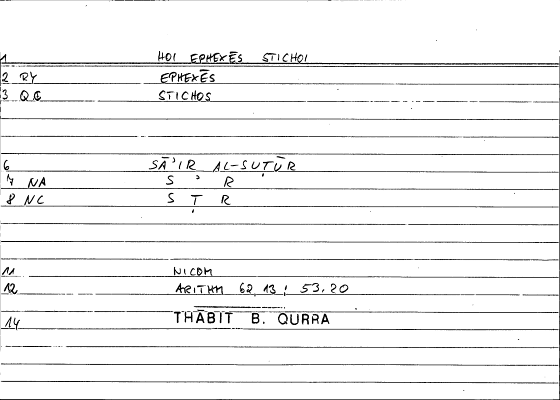 1 HOI EPHEXĒS STICHOI
2 RY EPHEXĒS
3 QC STICHOS
6 SĀʾIR AL-SUṬŪR
7 NA S ʾ R
8 NC S Ṭ R
11 NICOM
12 ARITHM 62,13 ; 53,20
14 THĀBIT B. QURRA